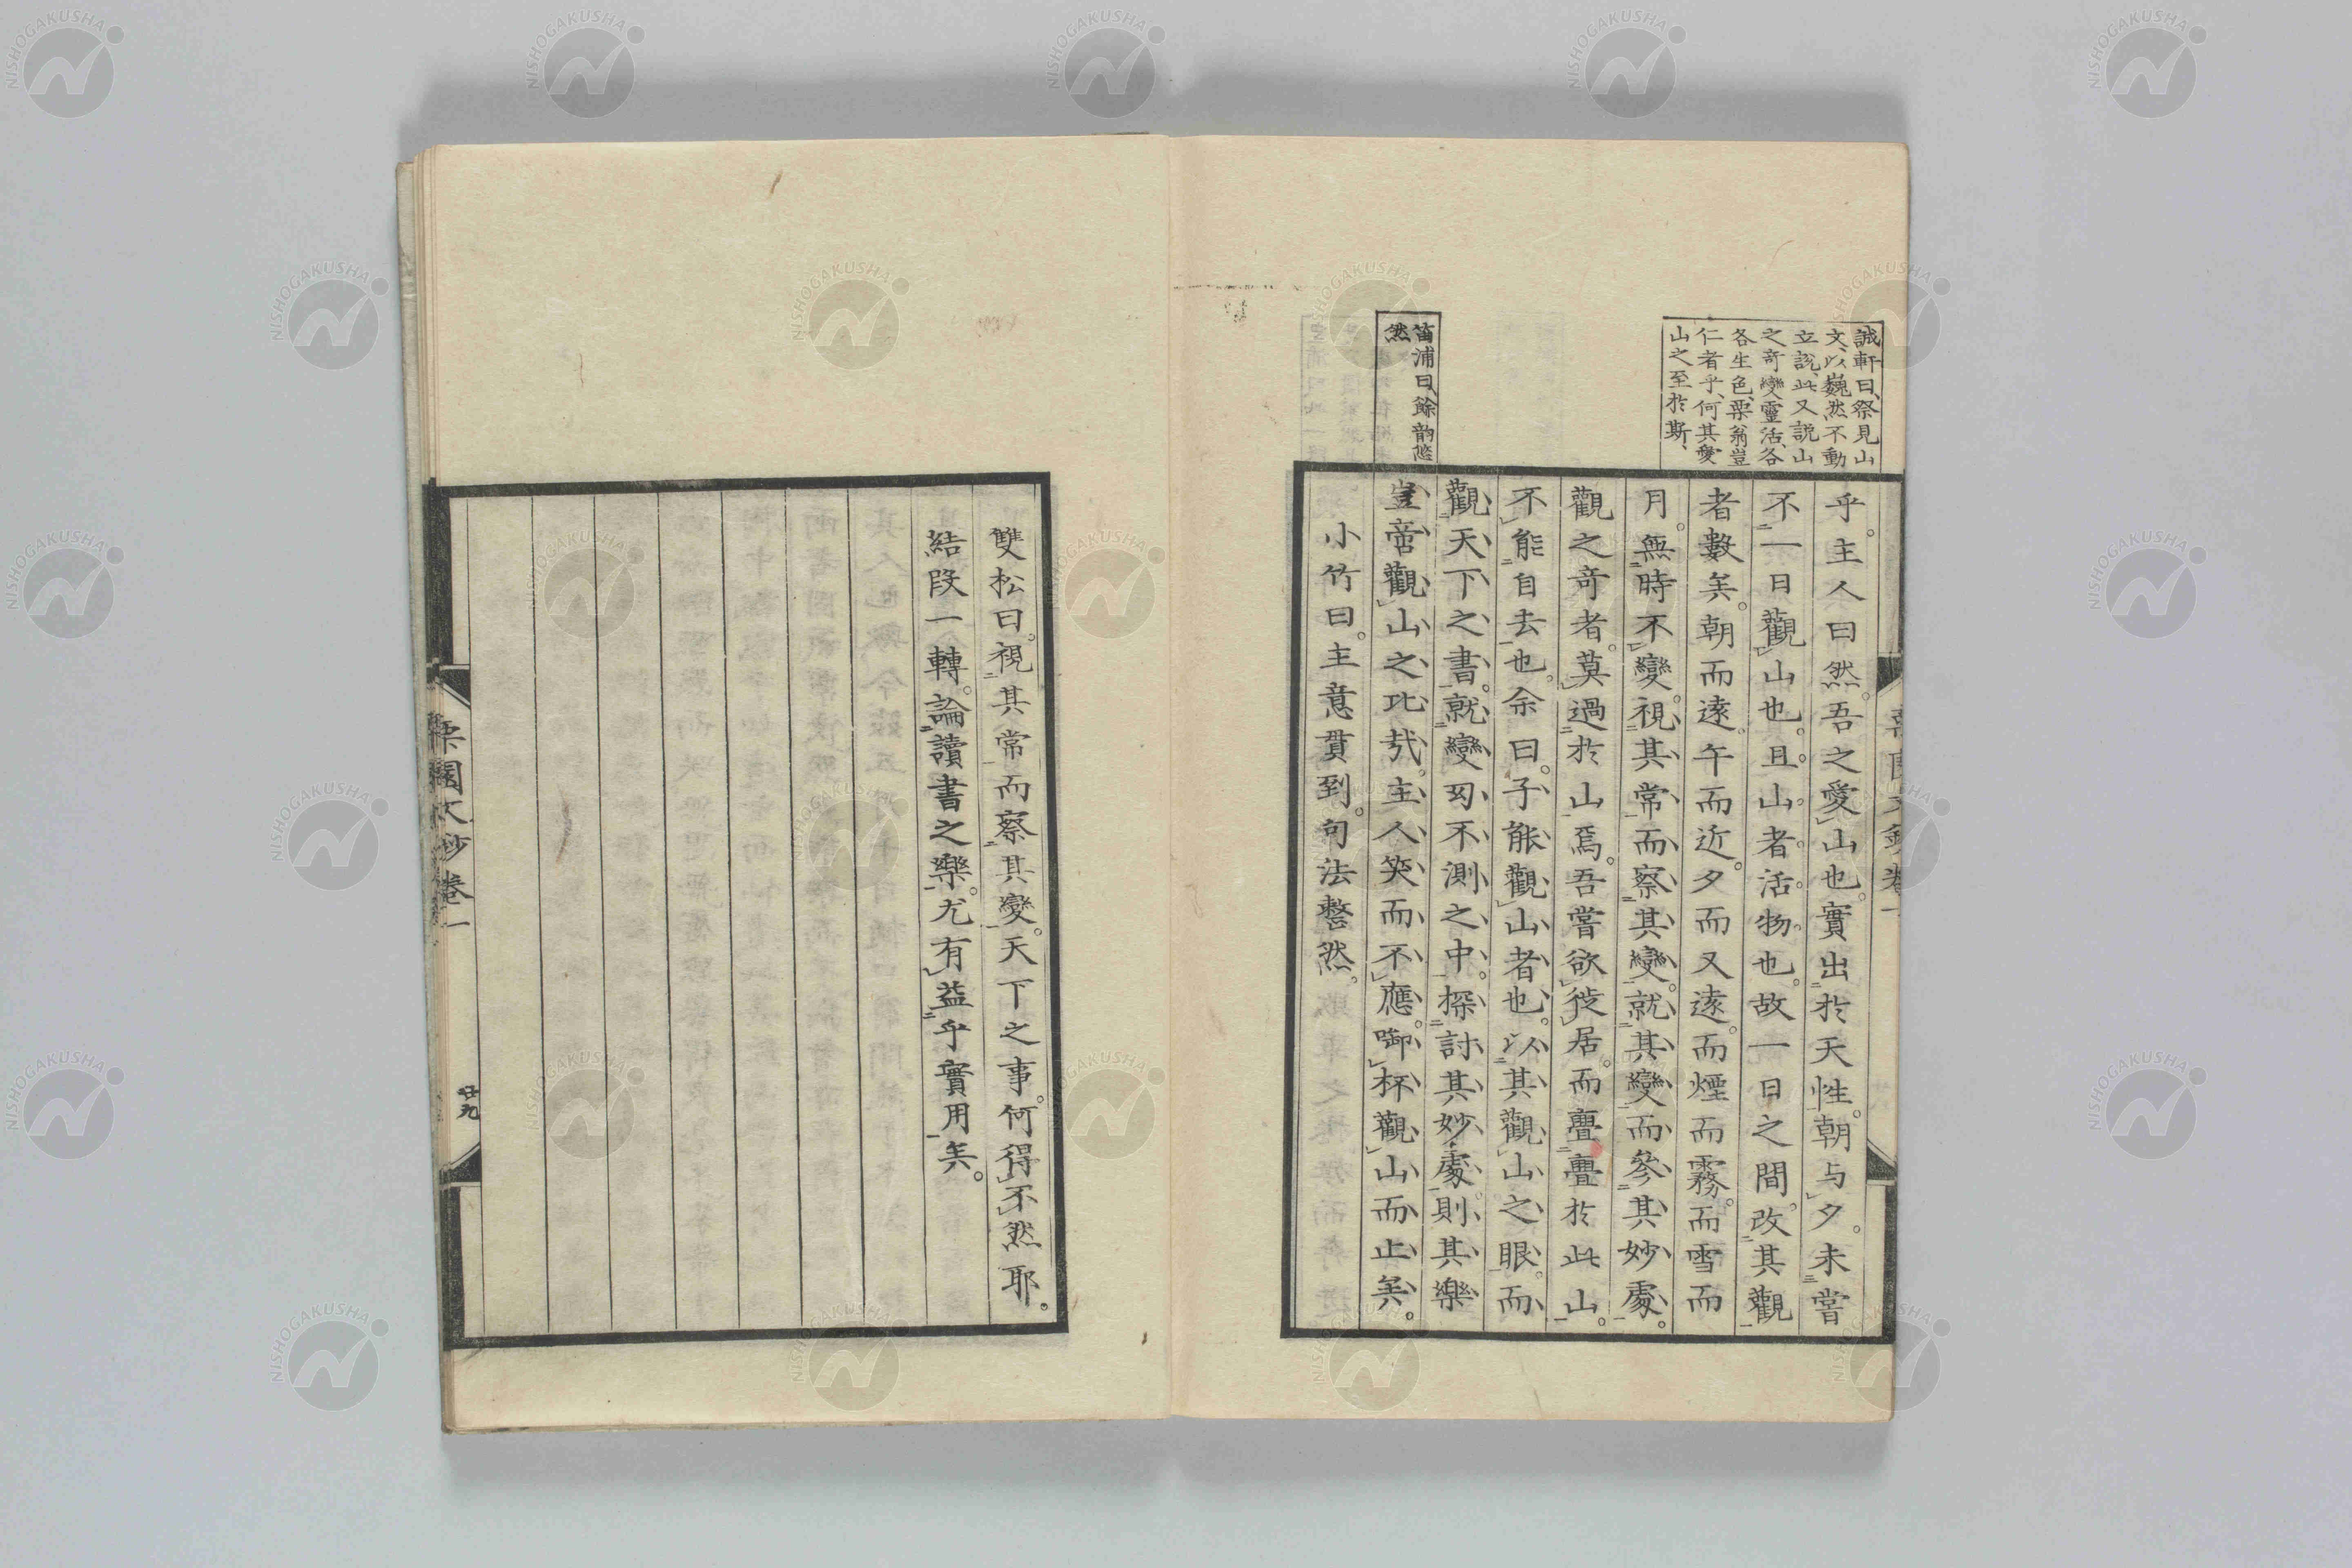 誠軒曰、祭見山
文、以巍然不動
立説、此又説山
之奇變靈活、各
各生色、栗翁豈
仁者乎、何其愛
山之至於斯、
乎。主人曰然。吾之愛山也。實出於天性。朝与夕。未嘗
不一日觀山也。且山者。活物也。故一日之間。改其觀
者數矣。朝而遠。午而近。夕而又遠。而煙而霧。而雪而
月。無時不變。視其常而察其變。就其變而參其妙處。
觀之奇者。莫過於山焉。吾嘗欲徙居。而亹亹於此山。
不能自去也。余曰。子能觀山者也。以其觀山之眼。而
觀天下之書。就變幻不測之中。探討其妙處。則其樂
豈啻觀山之比哉。主人笑而不應。啣杯觀山而止矣。
笛浦曰、餘韵悠
然
小竹曰。主意貫到。句法整然。
雙松曰。視其常而察其變。天下之事。何得不然耶。
結段一轉。論讀書之樂。尤有益乎實用矣。
栗園文鈔卷一
廿九
NISHOGAKUSHA